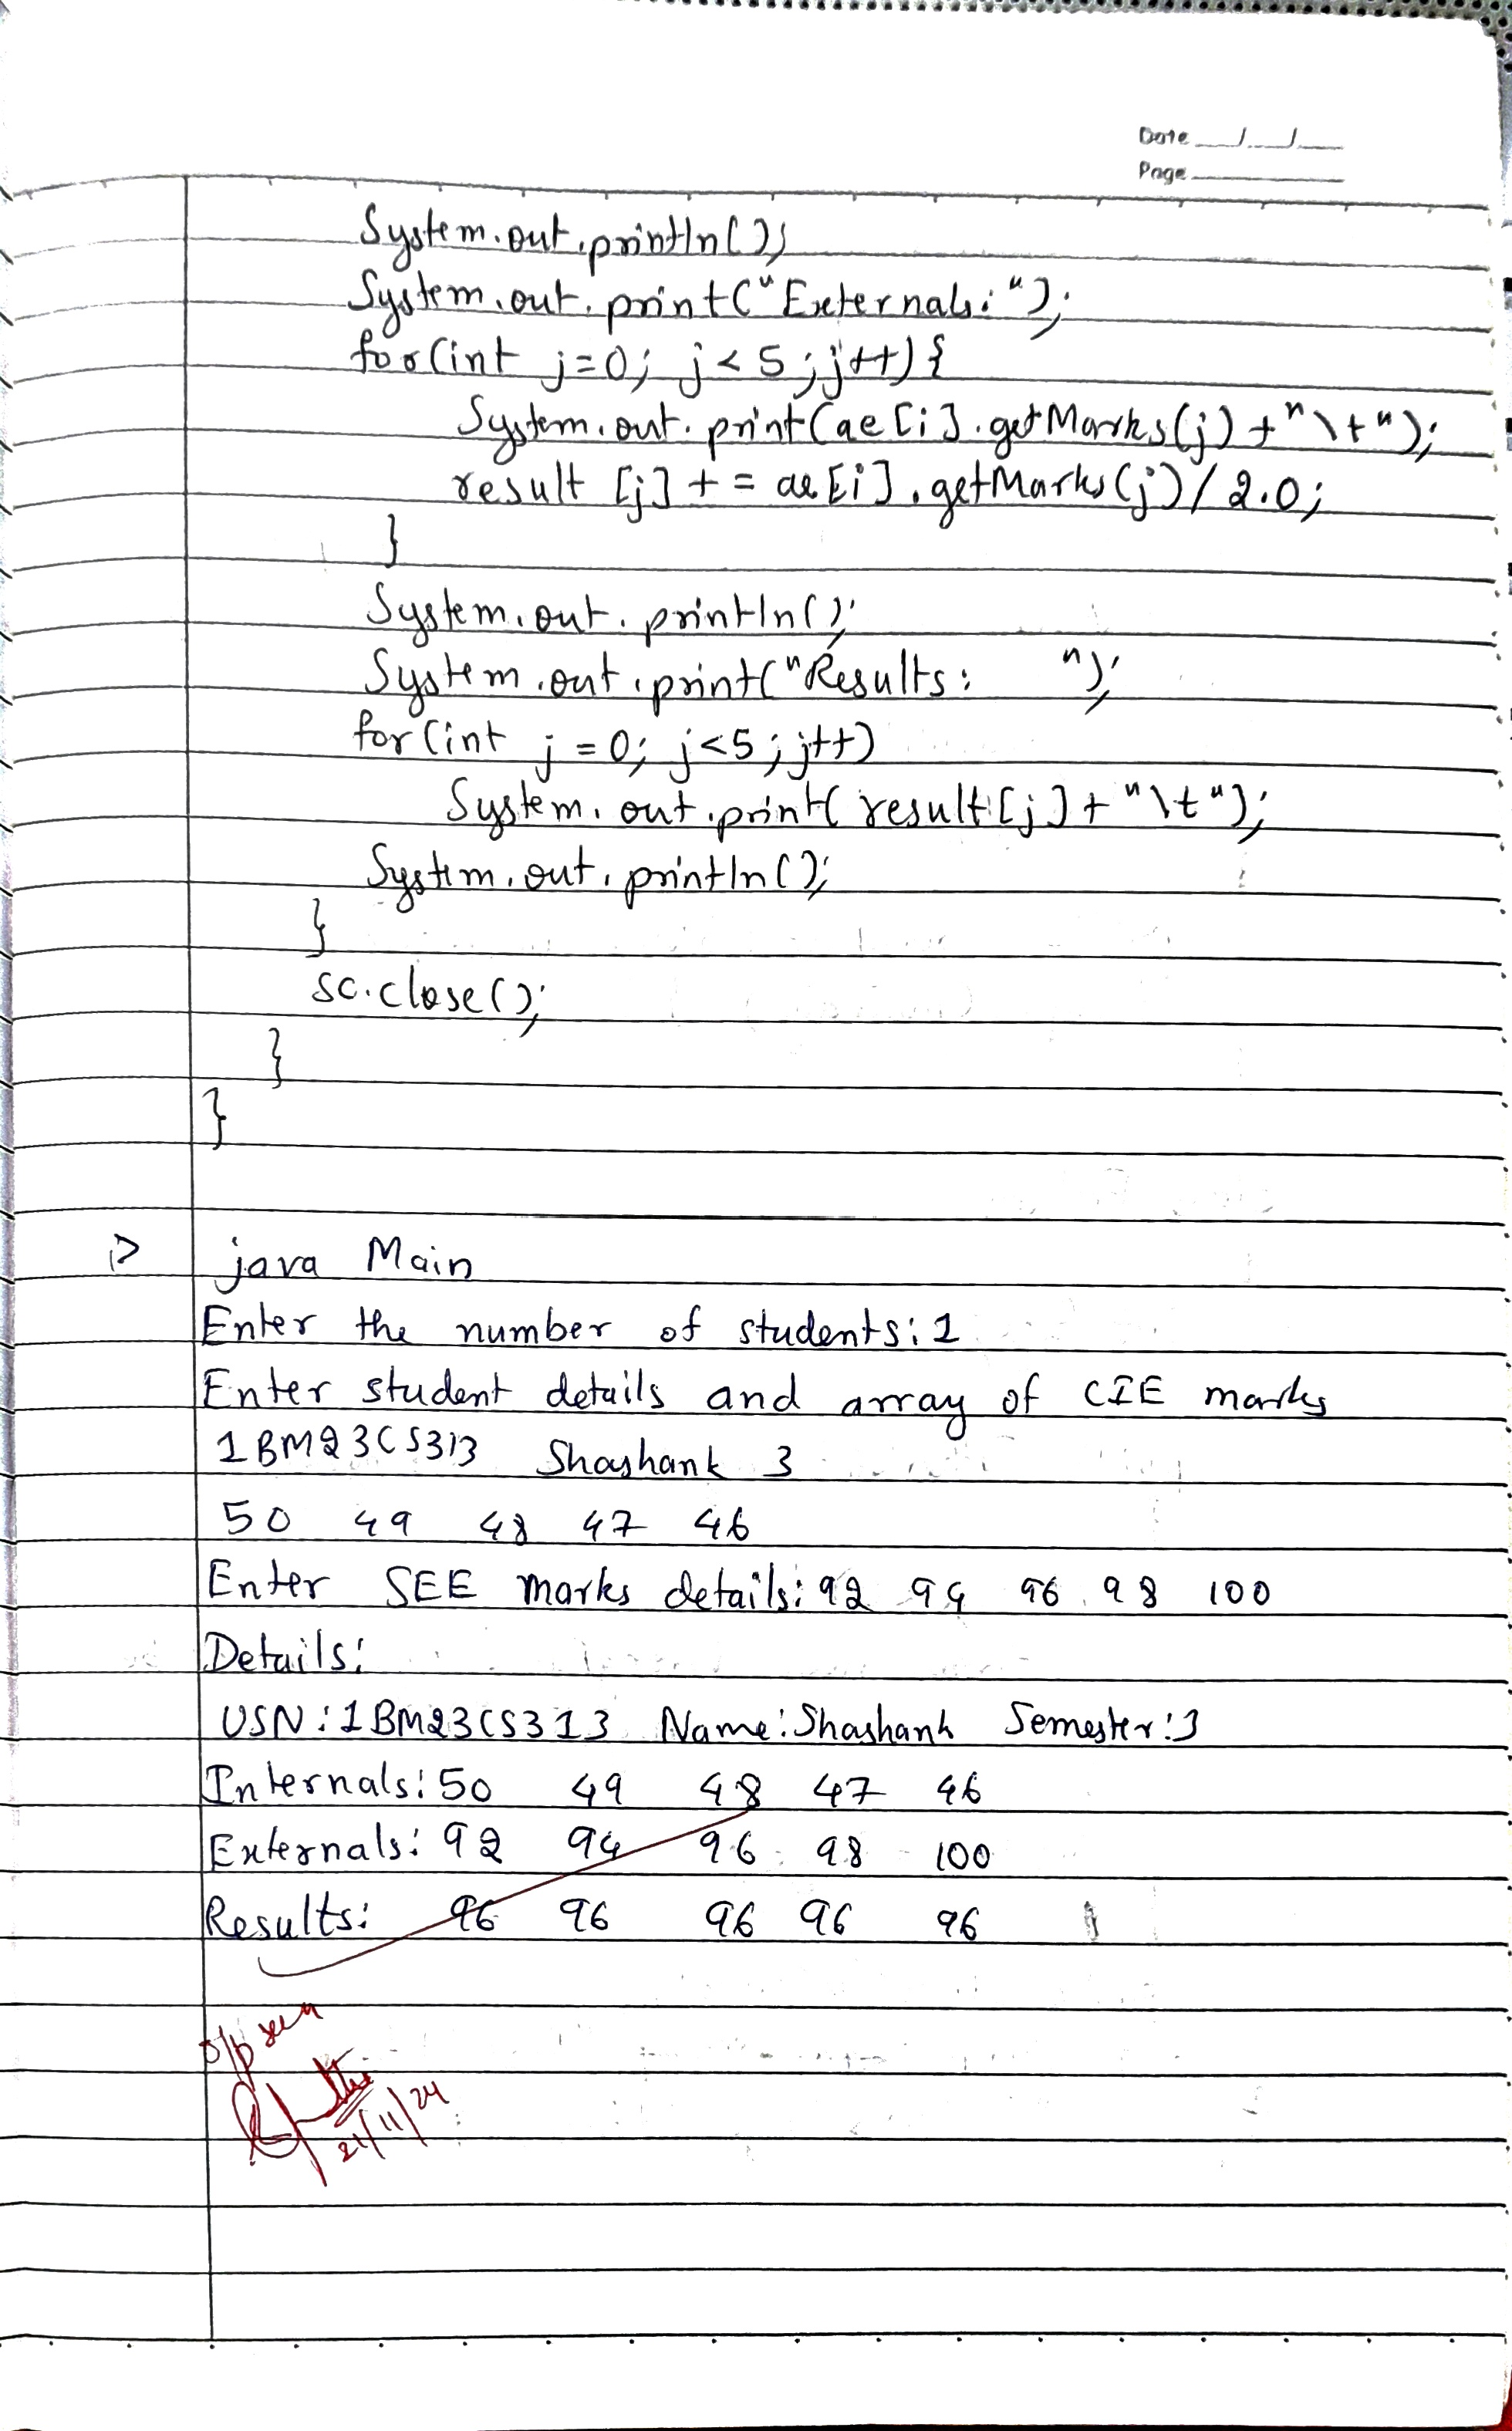 Date __/__/__
Page ______
System.out.println();
System.out.print("Externals:");
for(int j=0; j<5; j++){
System.out.print(ae[i].getMarks(j)+"\t");
result[j] += ae[i].getMarks(j)/2.0;
}
System.out.println();
System.out.print("Results:    ");
for(int j=0; j<5; j++)
System.out.print(result[j]+"\t");
System.out.println();
}
sc.close();
}
}
▷ java Main
Enter the number of students: 1
Enter student details and array of CIE marks
1BM23CS313 Shashank 3
50 49 48 47 46
Enter SEE marks details: 92 94 96 98 100
Details:
USN: 1BM23CS313 Name: Shashank Semester: 3
Internals: 50 49 48 47 46
Externals: 92 94 96 98 100
Results: 96 96 96 96 96
o/p seen
21/11/24